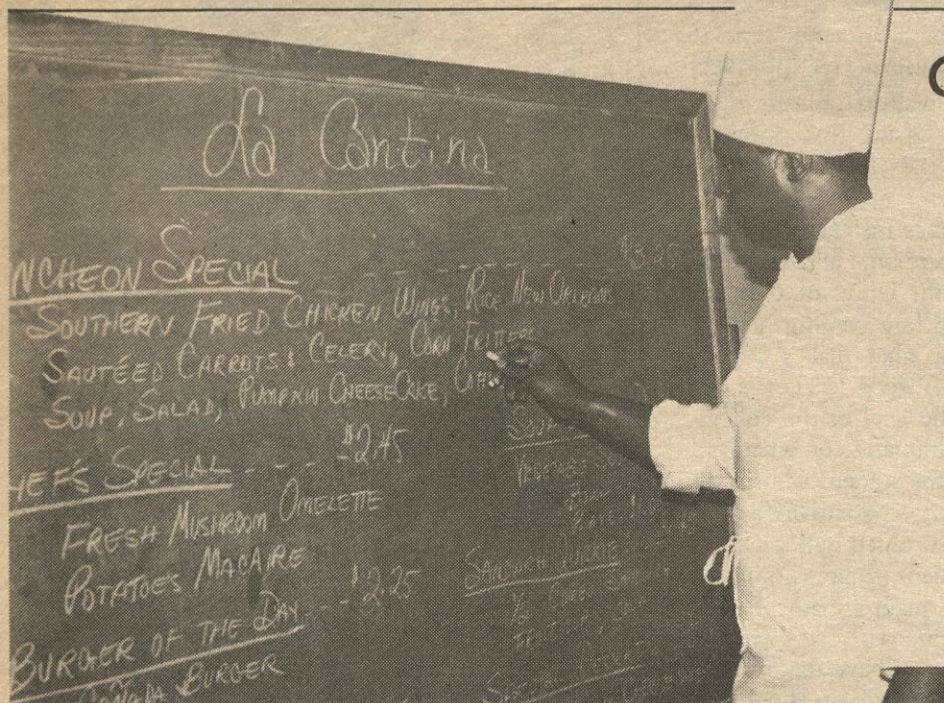 La Cantina
NCHEON SPECIAL - - - - - - - - - - $3.25
SOUTHERN FRIED CHICKEN WINGS, RICE NEW ORLEANS
SAUTÉED CARROTS & CELERY, CORN FRITTERS
SOUP, SALAD, PUMPKIN CHEESECAKE,
HEF'S SPECIAL - - - - $2.45
FRESH MUSHROOM OMELETTE
POTATOES MACAIRE
BURGER OF THE DAY - - $2.25
CAÑADA BURGER
VEGETABLE
SANDWICH QUICKIE
1/2